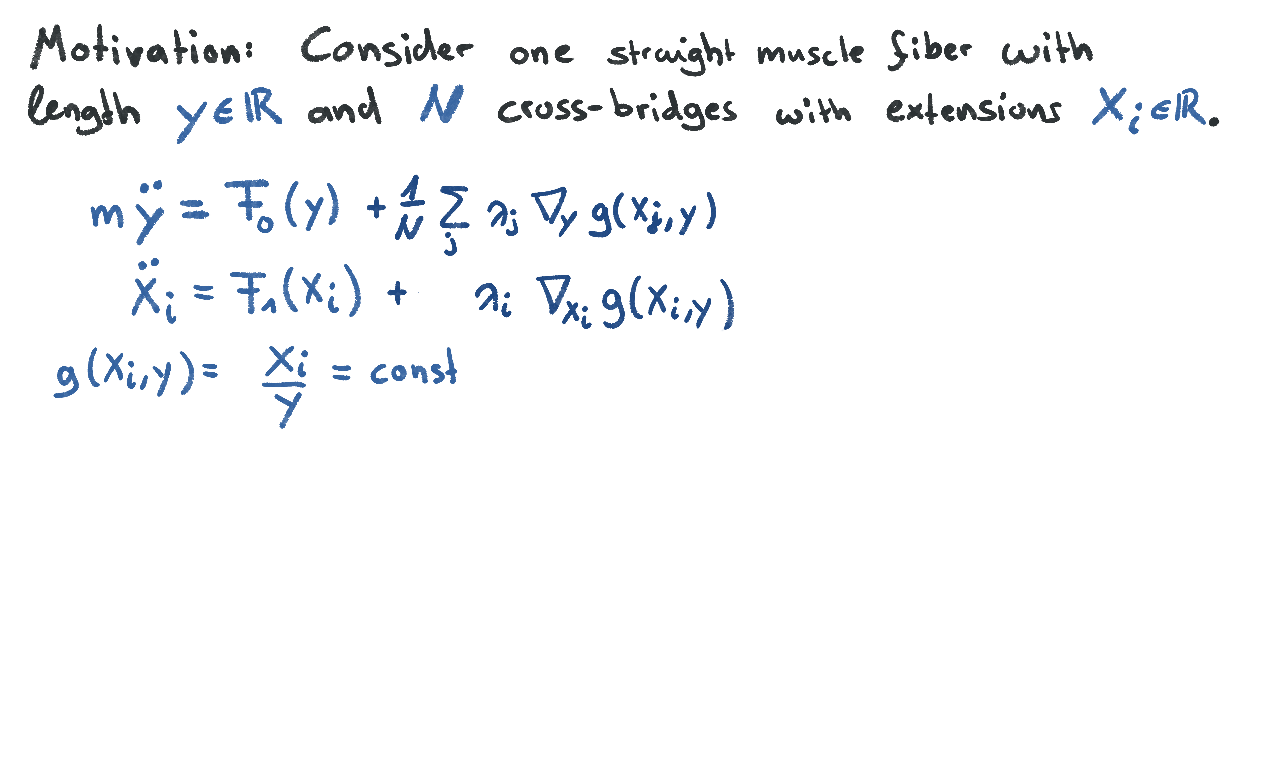 Motivation: Consider one straight muscle fiber with
length y ∈ ℝ and N cross-bridges with extensions X_i ∈ ℝ.
m ÿ = F_0(y) + 1/N ∑_j λ_j ∇_y g(X_j, y)
Ẍ_i = F_1(X_i) + λ_i ∇_{X_i} g(X_i, y)
g(X_i, y) = X_i / y = const